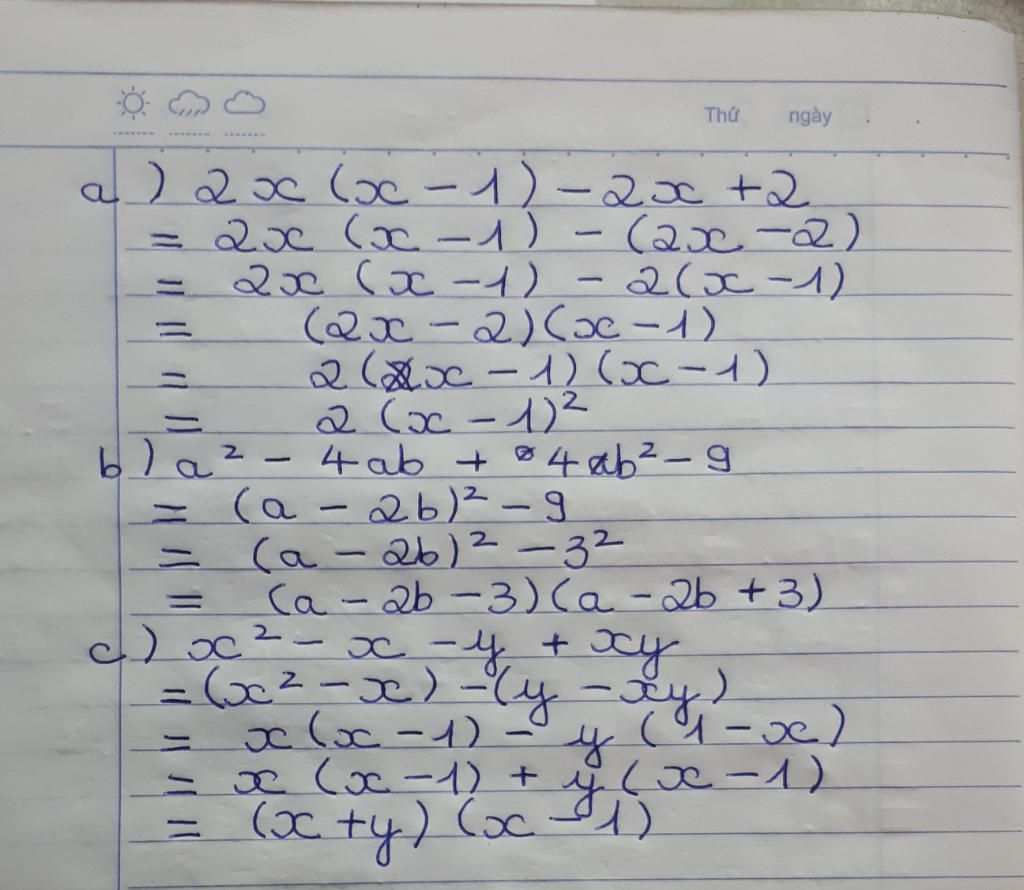 Thứ ngày
a) 2x (x - 1) - 2x + 2
= 2x (x - 1) - (2x - 2)
= 2x (x - 1) - 2(x - 1)
= (2x - 2)(x - 1)
= 2(x - 1)(x - 1)
= 2(x - 1)²
b) a² - 4ab + 4b² - 9
= (a - 2b)² - 9
= (a - 2b)² - 3²
= (a - 2b - 3)(a - 2b + 3)
c) x² - x - y + xy
= (x² - x) - (y - xy)
= x(x - 1) - y(1 - x)
= x(x - 1) + y(x - 1)
= (x + y)(x - 1)